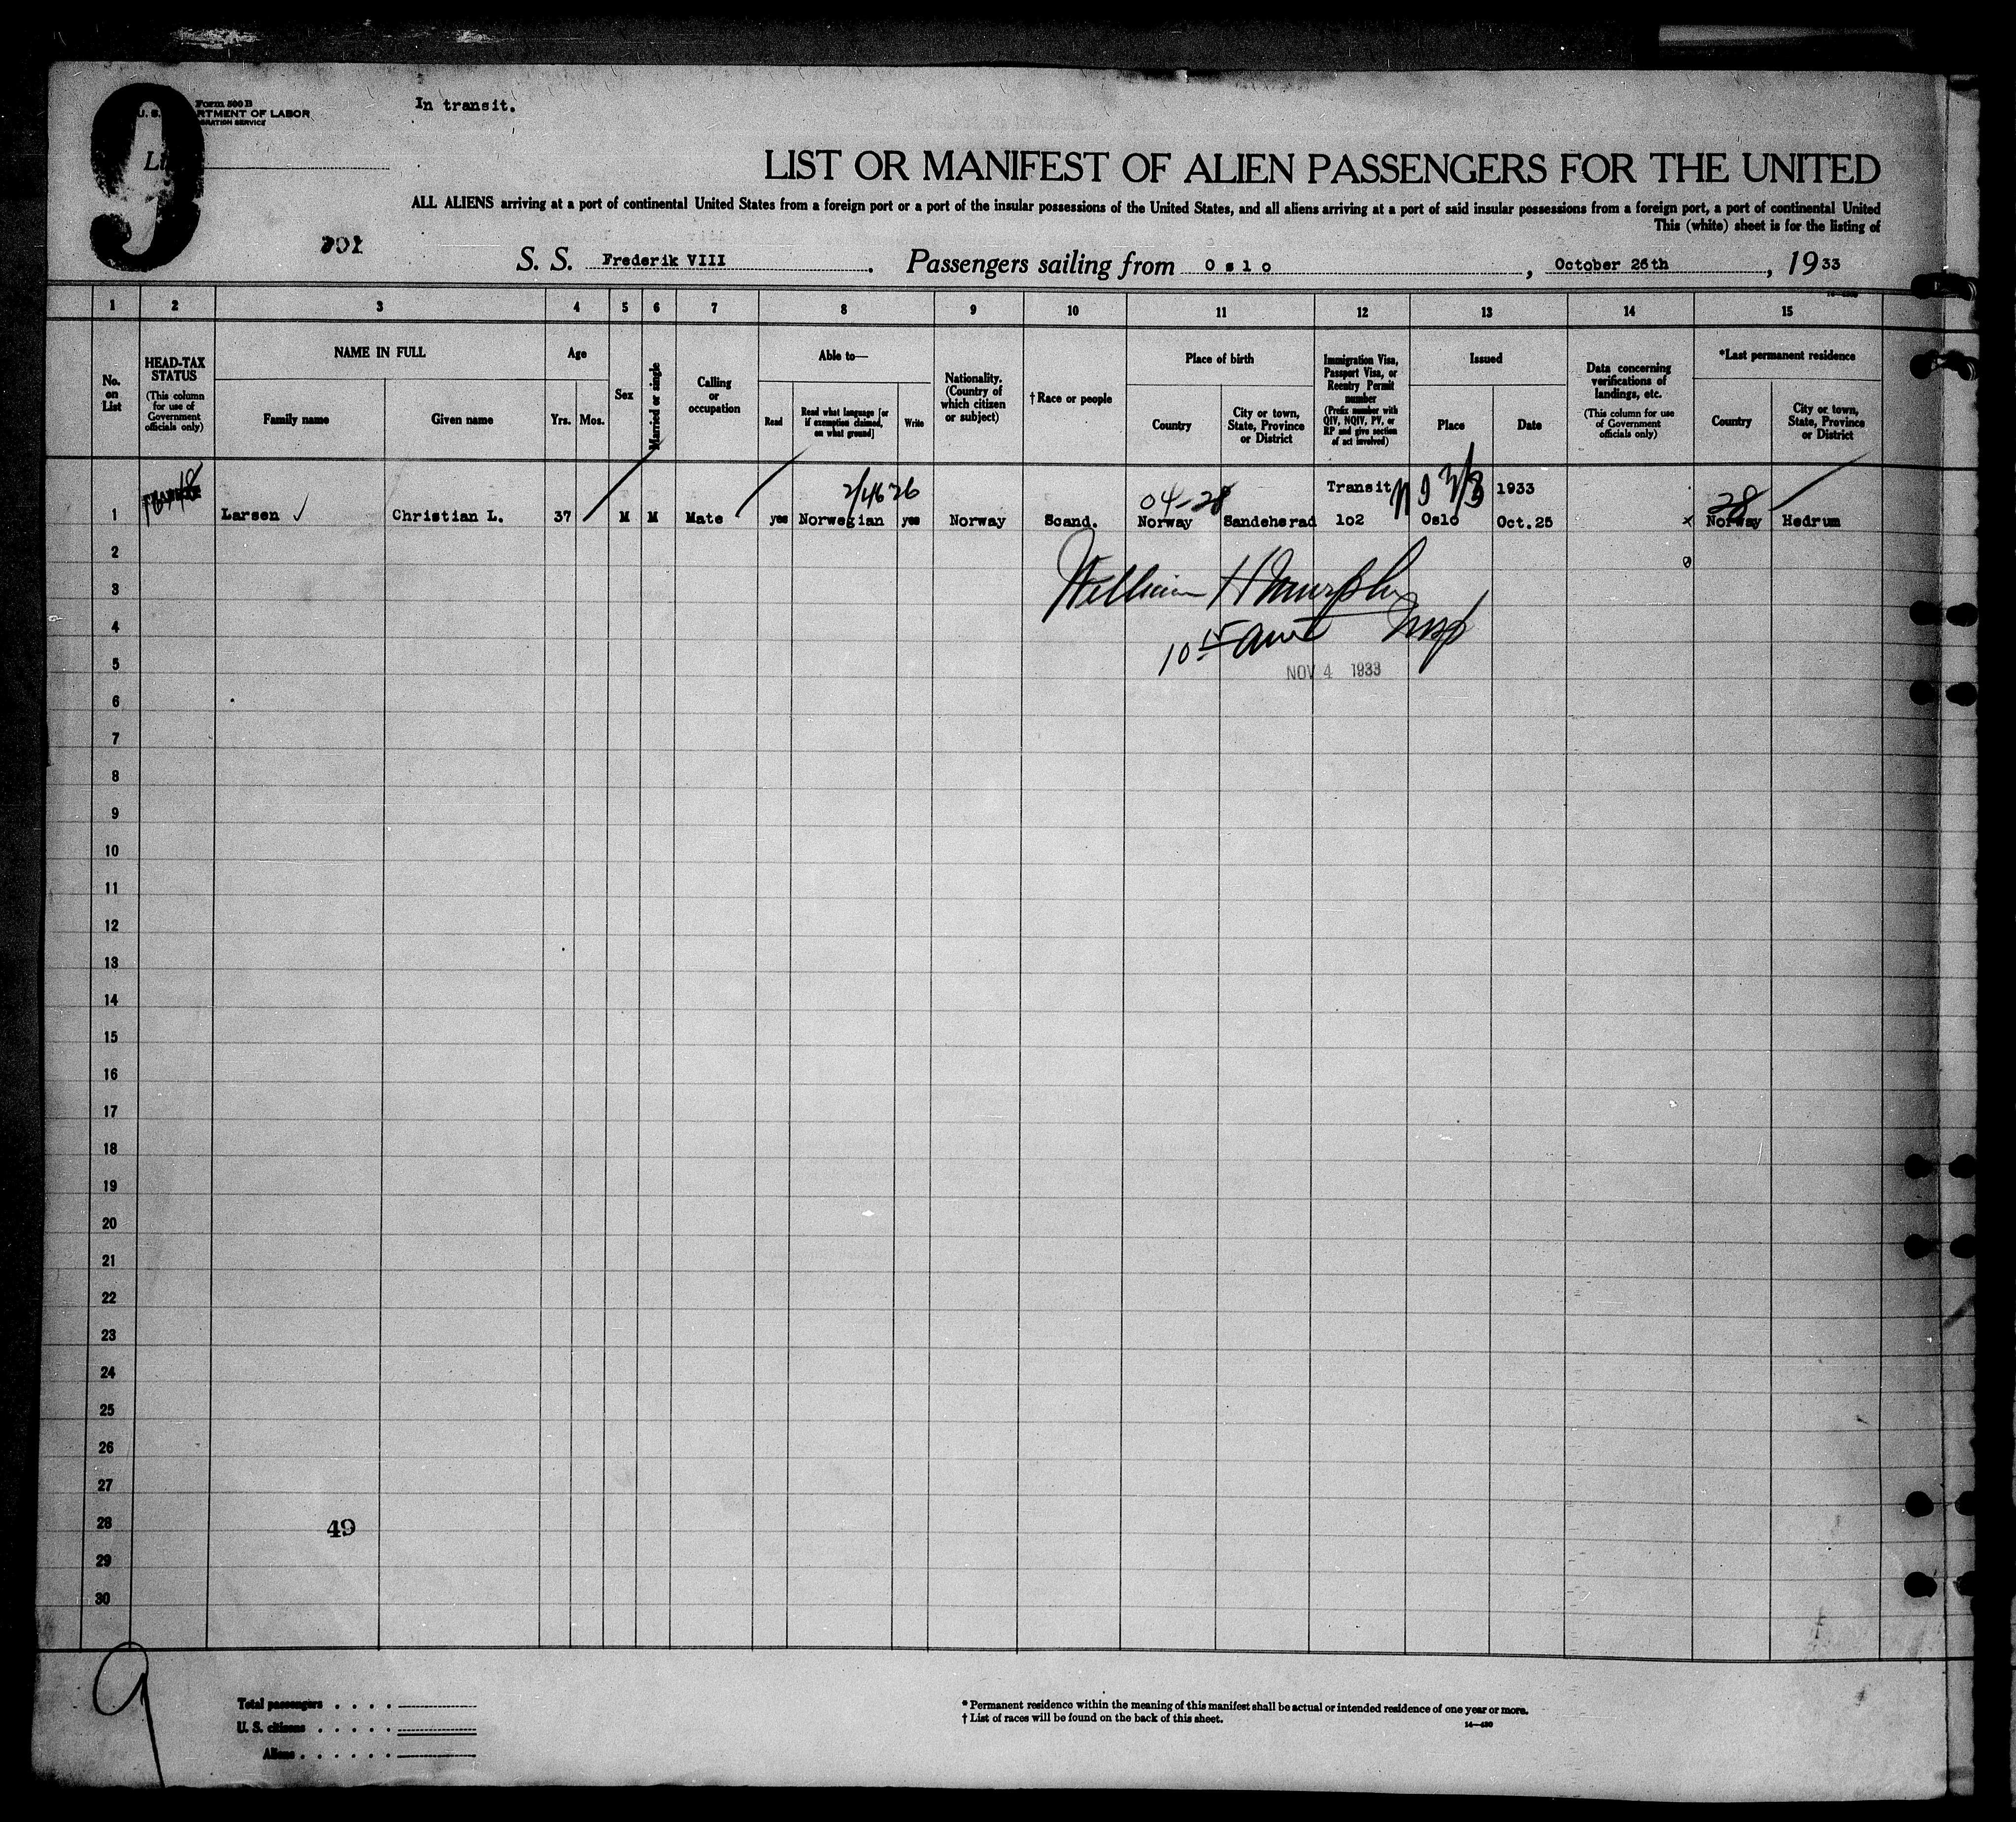 9
Form 500 B
In transit.
U. S. RTMENT OF LABOR
GRATION SERVICE
Li
LIST OR MANIFEST OF ALIEN PASSENGERS FOR THE UNITED
ALL ALIENS arriving at a port of continental United States from a foreign port or a port of the insular possessions of the United States, and all aliens arriving at a port of said insular possessions from a foreign port, a port of continental United
This (white) sheet is for the listing of
S. S. Frederik VIII . Passengers sailing from Oslo , October 26th , 1933
1 2 3 4 5 6 7 8 9 10 11 12 13 14 15
No. on List
HEAD-TAX STATUS
(This column for use of Government officials only)
NAME IN FULL
Family name
Given name
Age
Yrs. Mos.
Sex
Married or single
Calling or occupation
Able to—
Read
Read what language [or if exemption claimed, on what ground]
Write
Nationality. (Country of which citizen or subject)
†Race or people
Place of birth
Country
City or town, State, Province or District
Immigration Visa, Passport Visa, or Reentry Permit number
(Prefix number with QIV, NQIV, PV, or RP and give section of act involved)
Issued
Place
Date
Data concerning verifications of landings, etc.
(This column for use of Government officials only)
*Last permanent residence
Country
City or town, State, Province or District
04-28 Transit 1933 28
1 Larsen ✓ Christian L. 37 M M Mate yes Norwegian yes Norway Scand. Norway Sandeherad 102 Oslo Oct.25 x Norway Hedrum
2
William H Murphy
3
4
Insp
5
NOV 4 1933
6
7
8
9
10
11
12
13
14
15
16
17
18
19
20
21
22
23
24
25
26
27
28 49
29
30
9
Total passengers . . . .
U. S. citizens . . . . .
Aliens . . . . . .
* Permanent residence within the meaning of this manifest shall be actual or intended residence of one year or more.
† List of races will be found on the back of this sheet.
14—480